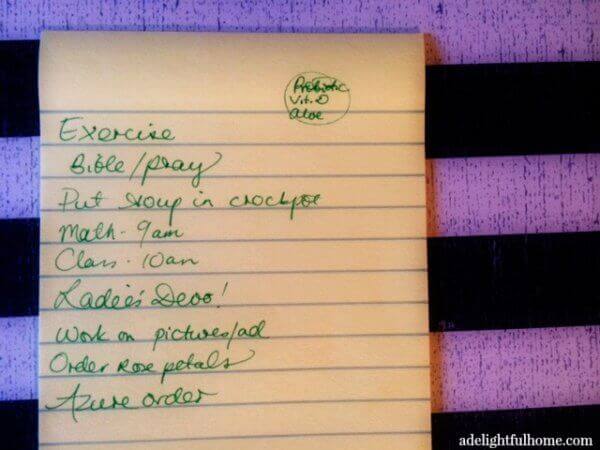 Probiotic
Vit. D
aloe
Exercise
Bible/pray
Put soup in crockpot
Math - 9am
Class - 10am
Ladies Devo!
Work on pictures/ad
Order Rose petals
Azure order
adelightfulhome.com